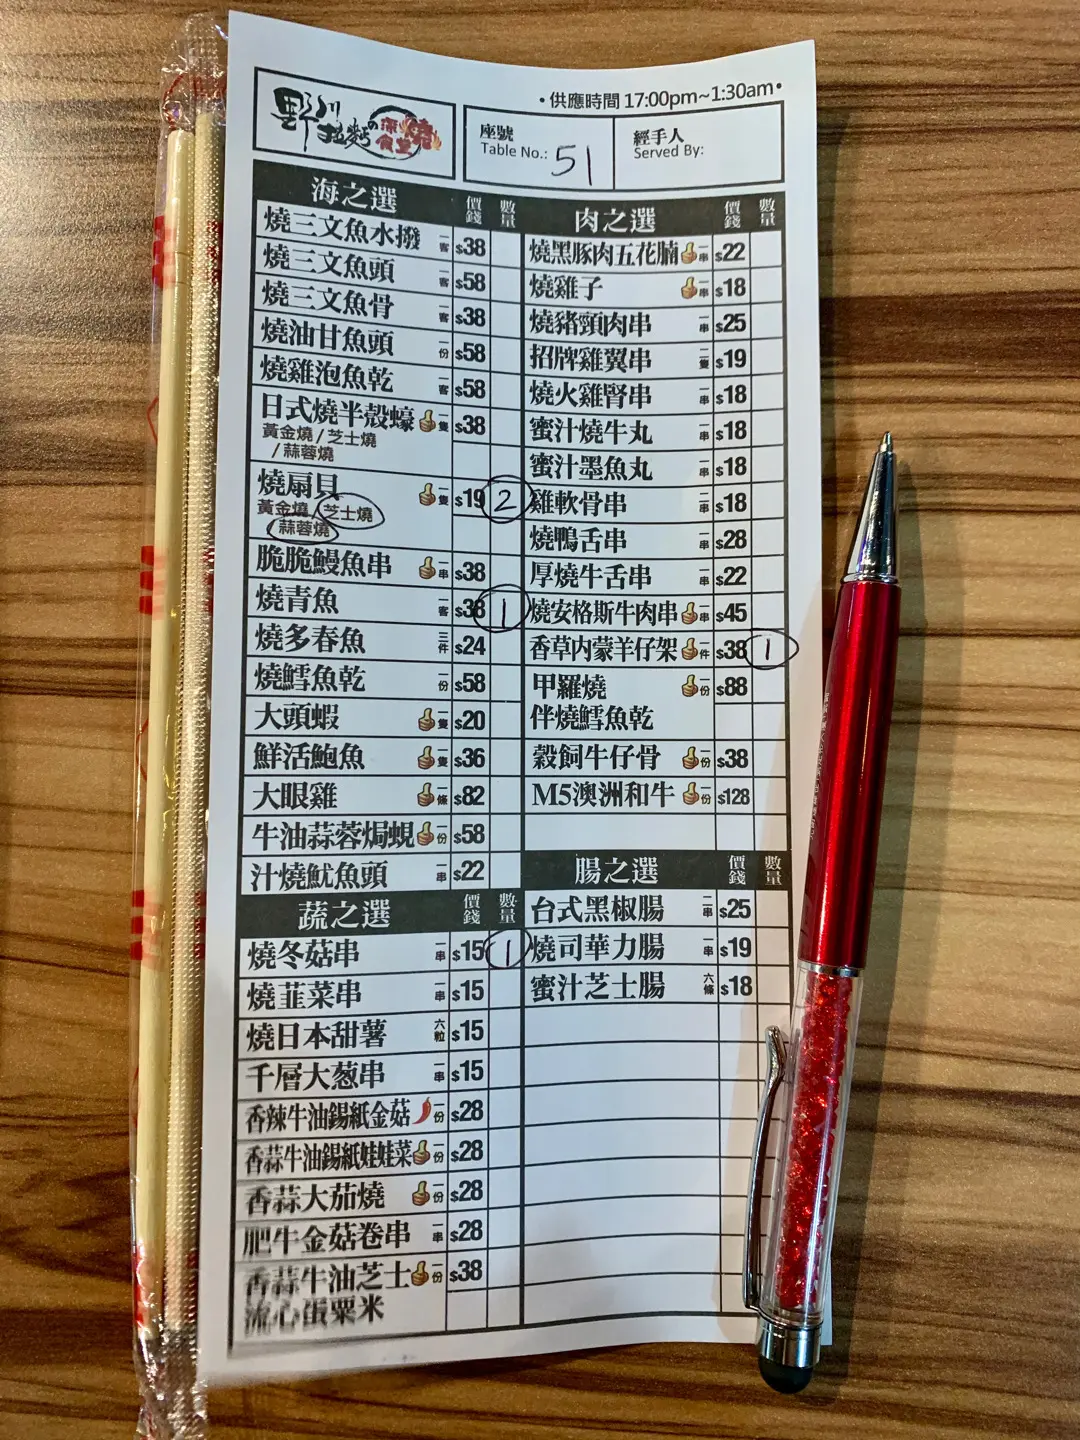 •供應時間 17:00pm~1:30am•
野川
拉麵の深燒食堂
座號
Table No.: 51
經手人
Served By:
海之選 價錢 數量
燒三文魚水撥 一客 $38
燒三文魚頭 一客 $58
燒三文魚骨 一客 $38
燒油甘魚頭 一份 $58
燒雞泡魚乾 一客 $58
日式燒半殼蠔 一隻 $38
黃金燒/芝士燒
/蒜蓉燒
燒扇貝 一隻 $19 2
黃金燒/芝士燒
蒜蓉燒
脆脆鰻魚串 一串 $38
燒青魚 一客 $38 1
燒多春魚 三件 $24
燒鱈魚乾 一份 $58
大頭蝦 一隻 $20
鮮活鮑魚 一隻 $36
大眼雞 一條 $82
牛油蒜蓉焗蜆 一份 $58
汁燒魷魚頭 一串 $22
蔬之選 價錢 數量
燒冬菇串 一串 $15 1
燒韮菜串 一串 $15
燒日本甜薯 六粒 $15
千層大葱串 一串 $15
香辣牛油錫紙金菇 一份 $28
香蒜牛油錫紙娃娃菜 一份 $28
香蒜大茄燒 一份 $28
肥牛金菇卷串 一串 $28
香蒜牛油芝士 一份 $38
流心蛋粟米
肉之選 價錢 數量
燒黑豚肉五花腩 一串 $22
燒雞子 一串 $18
燒豬頸肉串 一串 $25
招牌雞翼串 二隻 $19
燒火雞腎串 一串 $18
蜜汁燒牛丸 一串 $18
蜜汁墨魚丸 一串 $18
雞軟骨串 二串 $18
燒鴨舌串 一串 $28
厚燒牛舌串 一串 $22
燒安格斯牛肉串 一串 $45
香草內蒙羊仔架 一件 $38 1
甲羅燒 一份 $88
伴燒鱈魚乾
穀飼牛仔骨 一份 $38
M5澳洲和牛 一份 $128
腸之選 價錢 數量
台式黑椒腸 二串 $25
燒司華力腸 一串 $19
蜜汁芝士腸 六條 $18